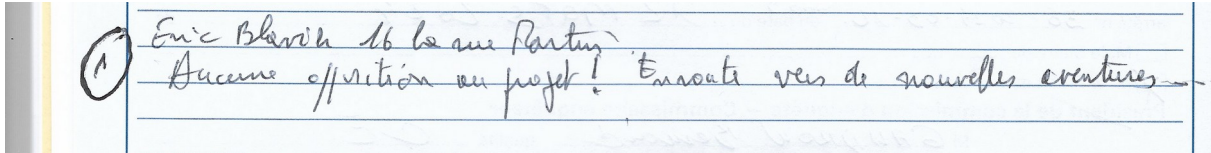 ① Eric Blavin 16 la rue Martin
Aucune opposition au projet ! Enroute vers de nouvelles aventures...